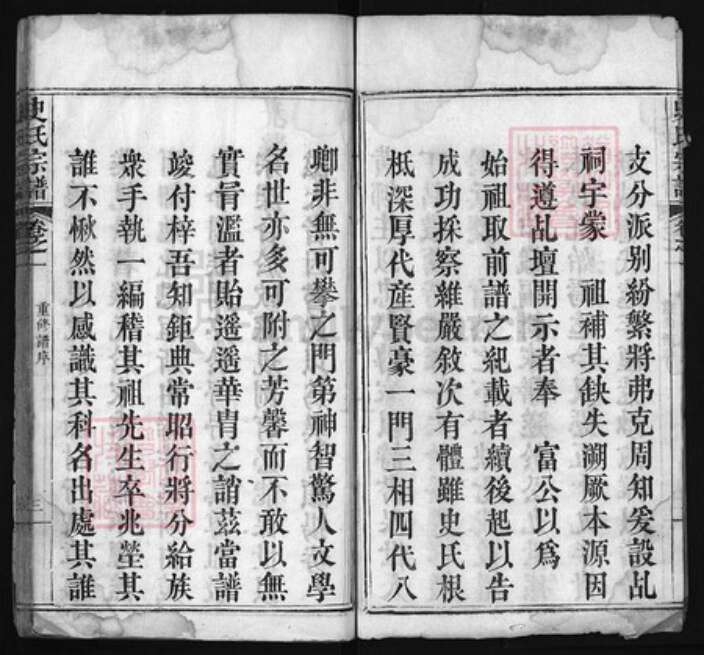 支分派別紛繁將弗克周知爰設乩
祠宇蒙　祖補其缺失溯厥本源因
得遵乩壇開示者奉　富公以爲
始祖取前譜之紀載者續後起以告
成功採察維嚴敘次有體雖史氏根
柢深厚代産賢豪一門三相四代八
卿非無可攀之門第神智驚人文學
名世亦多可附之芳馨而不敢以無
實胥濫者貽遥遥華胄之誚茲當譜
竣付梓吾知鉅典常昭行將分給族
衆手執一編稽其祖先生卒兆塋其
誰不楸然以感識其科名出處其誰
史氏宗譜
卷之一
重修譜序
三